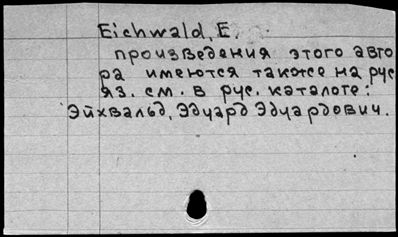 Eichwald, E.
произведения этого авто
ра имеются также на рус
яз. см. в рус. каталоге:
Эйхвальд, Эдуард Эдуардович.